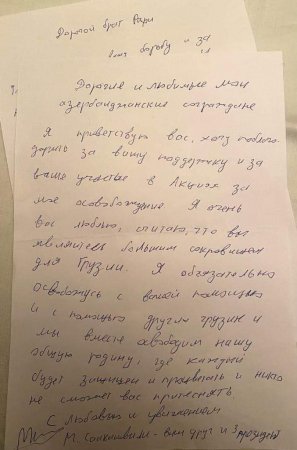 Дорогой брат Рари
борьбу и за
Дорогие и любимые мои
азербайджанские сограждане
Я приветствую вас, хочу поблаго-
дарить за вашу поддержку и за
ваше участие в Акциях за
мое освобождение. Я очень
вас люблю, считаю, что вы
являетесь большим сокровищем
для Грузии. Я обязательно
освобожусь с вашей помощью
и с помощью других грузин и
мы вместе освободим нашу
общую родину, где каждый
будет защищен и процветать и никто
не сможет вас притеснять.
С любовью и уважением
М. Саакашвили - ваш друг и 3 президент